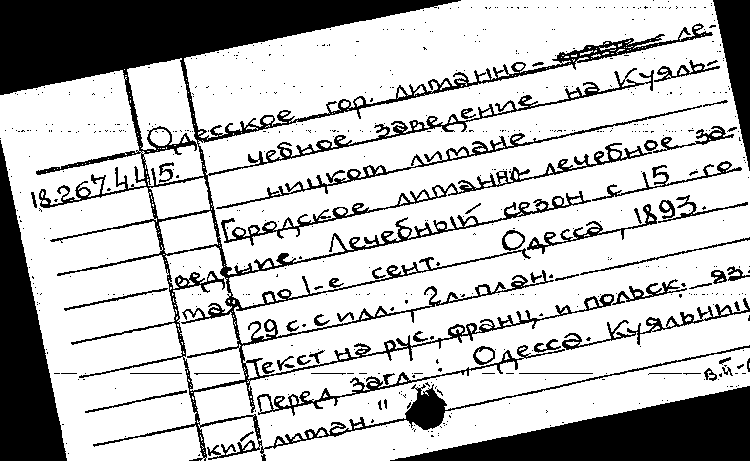 Одесское гор. лиманно- ле-
чебное заведение на Куяль-
ницком лимане.
18.267.4.415.
Городское лиманно-лечебное за-
ведение. Лечебный сезон с 15-го
мая по 1-е сент. Одесса, 1893.
29 с. с илл.; 2 л. план.
Текст на рус., франц. и польск. яз.
Перед загл.: "Одесса. Куяльниц-
кий лиман."